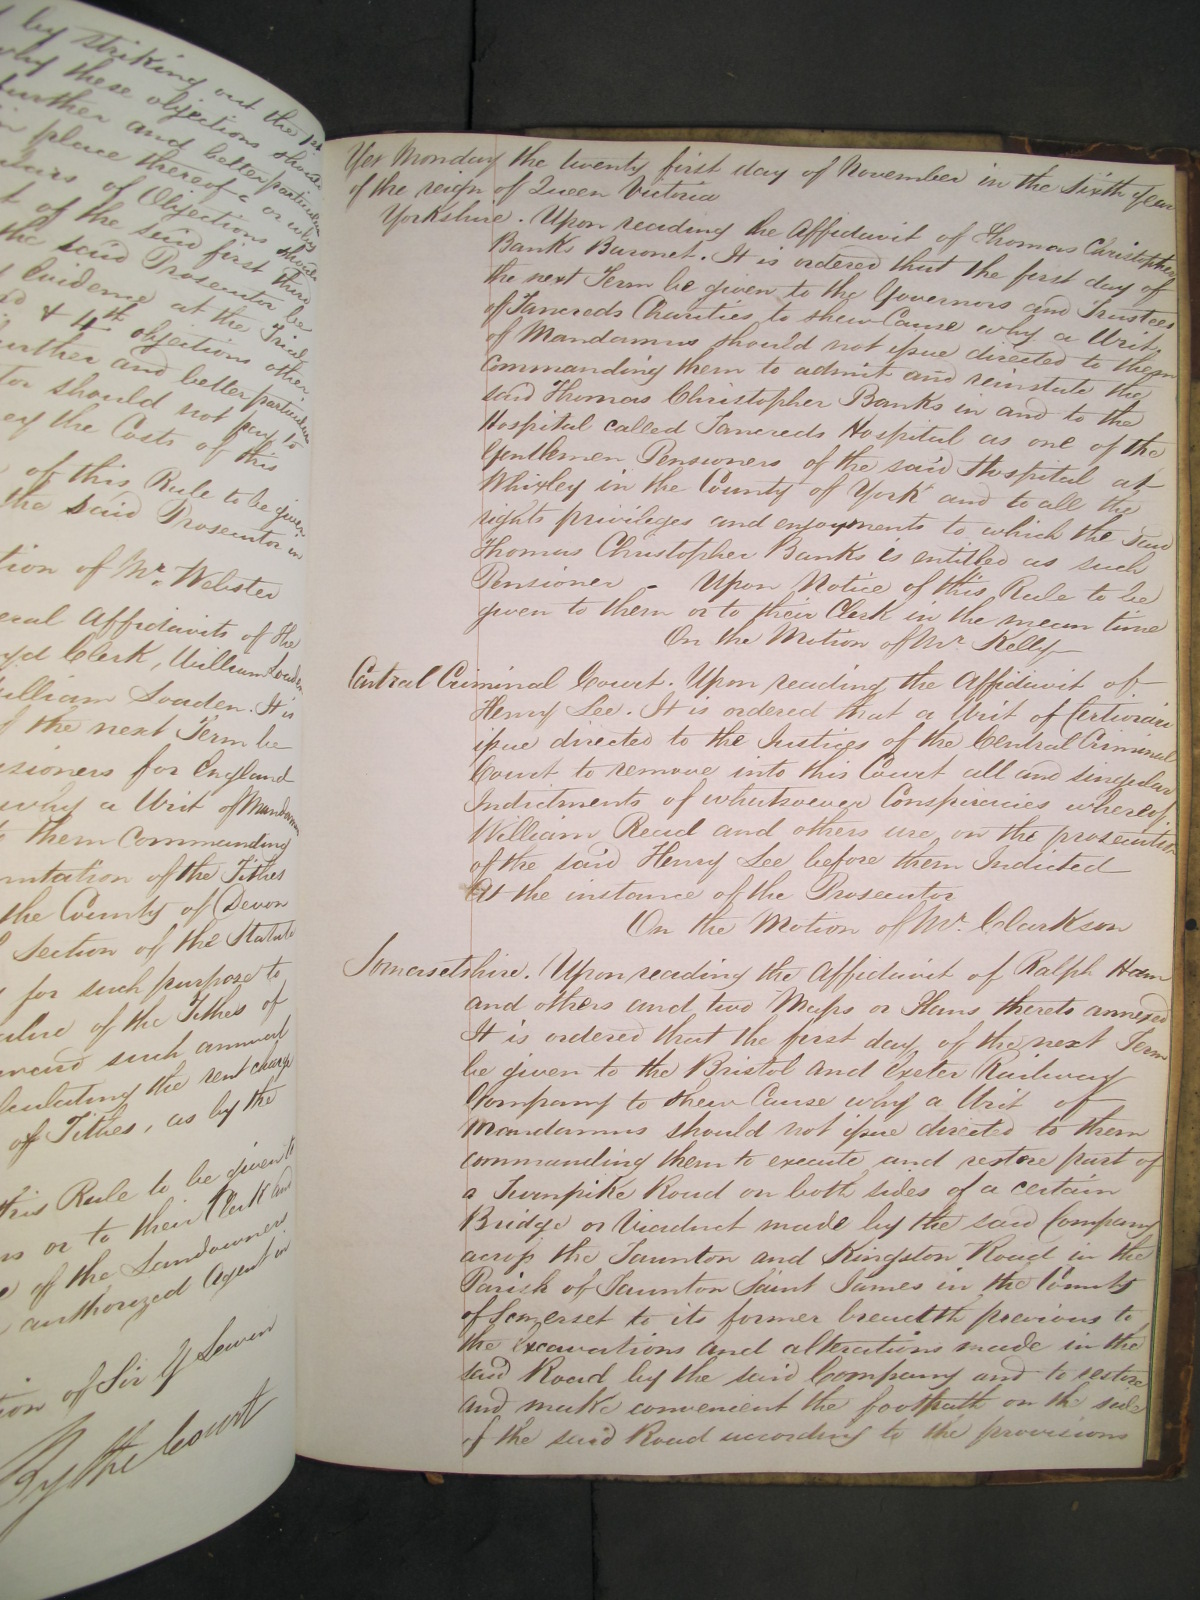 by striking out the 1st
why these objections should
further and better particulars
in place thereof or why
of Objections should
of the said first three
the said Prosecutor be
Evidence at the Trial
& 4th objections other
further and better particulars
should not pay to
the Costs of this
of this Rule to be given
the said Prosecutor in
of Mr. Webster
Affidavits of
Clerk, William Loaden
William Loaden. It is
the next Term be
for England
why a Writ of Mandamus
them commanding
of the Tithes
the County of Devon
section of the Statute
for such purpose to
of the Tithes of
such annual
the rent charge
of Tithes, as by the
this Rule to be given to
or to their Clerk and
of the Landowners
authorized Agent or
of Sir
By the Court
Yet Monday the twenty first day of November in the Sixth Year
of the reign of Queen Victoria
Yorkshire. Upon reading the Affidavit of Thomas Christopher
Banks Baronet. It is ordered that the first day of
the next Term be given to the Governors and Trustees
of Tancreds Charities to shew Cause why a Writ
of Mandamus should not issue directed to them
Commanding them to admit and reinstate the
said Thomas Christopher Banks in and to the
Hospital called Tancreds Hospital as one of the
Gentlemen Pensioners of the said Hospital at
Whixley in the County of York and to all the
rights privileges and enjoyments to which the said
Thomas Christopher Banks is entitled as such
Pensioner - Upon Notice of this Rule to be
given to them or to their Clerk in the mean time
On the Motion of Mr. Kelly
Central Criminal Court. Upon reading the Affidavit of
Henry Lee. It is ordered that a Writ of Certiorari
issue directed to the Justices of the Central Criminal
Court to remove into this Court all and singular
Indictments of whatsoever Conspiracies whereof
William Read and others are, on the prosecution
of the said Henry Lee before them Indicted
At the instance of the Prosecutor
On the Motion of Mr. Clarkson
Somersetshire. Upon reading the Affidavit of Ralph Ham
and others and two Maps or Plans thereto annexed
It is ordered that the first day of the next Term
be given to the Bristol and Exeter Railway
Company to shew Cause why a Writ of
Mandamus should not issue directed to them
commanding them to execute and restore part of
a Turnpike Road on both sides of a certain
Bridge or Viaduct made by the said Company
across the Taunton and Kingston Road in the
Parish of Taunton Saint James in the County
of Somerset to its former breadth previous to
the excavations and alterations made in the
said Road by the said Company and to restore
and make convenient the footpath on the side
of the said Road according to the provisions